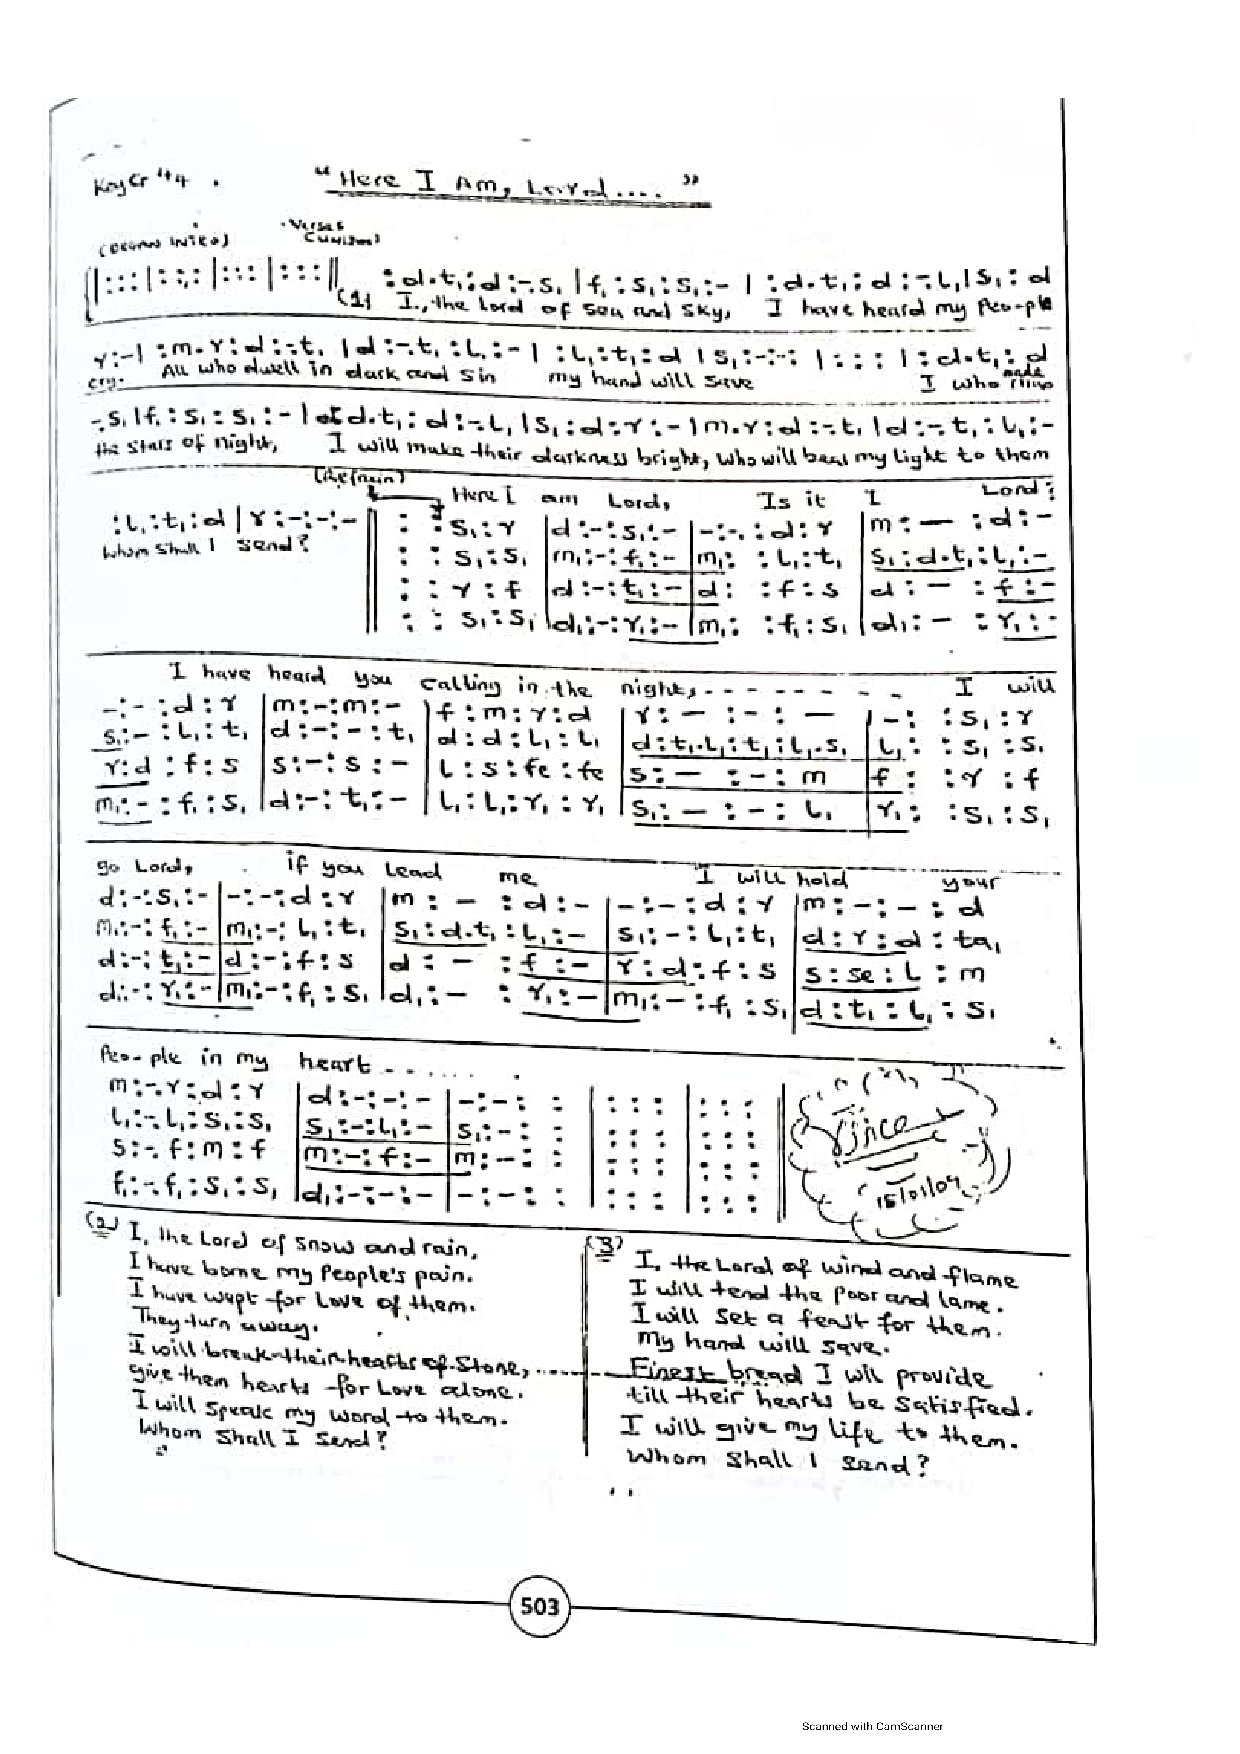 Key G 4/4 . "Here I Am, Lord...."
(ORGAN INTRO) Verses (Unison)
||:::|:::|:::|:::|| :d.t₁:d:-.s₁|f₁:s₁:s₁:-|:d.t₁:d:-.l₁|s₁:d
(1) I, the Lord of sea and sky, I have heard my Peo-ple
r:-|:m.r:d:-.t₁|d:-.t₁:l₁:-|:l₁:t₁:d|s₁:-:-:|:::|:d.t₁:d
cry. All who dwell in dark and sin my hand will save I who made
-.s₁|f₁:s₁:s₁:-|d.t₁:d:-.l₁|s₁:d:r:-|m.r:d:-.t₁|d:-.t₁:l₁:-
the stars of night, I will make their darkness bright, who will bear my light to them
(Refrain)
Here I am Lord, Is it I Lord?
:l₁:t₁:d|r:-:-:-|| : :s₁:r|d:-:s₁:-|-:-:d:r|m:—:d:-
Whom shall I send?
: :s₁:s₁|m₁:-:f₁:-|m₁: :l₁:t₁|s₁:d.t₁:l₁:-
: :r:f|d:-:t₁:-|d: :f:s|d:—:f:-
: :s₁:s₁|d₁:-:r₁:-|m₁: :f₁:s₁|d₁:—:r₁:-
I have heard you calling in the night, - - - - - - - - I will
-:-:d:r|m:-:m:-|f:m:r:d|r:—:-:—|-: :s₁:r
s₁:-:l₁:t₁|d:-:-:t₁|d:d:l₁:l₁|d:t₁.l₁:t₁:l₁.s₁|l₁: :s₁:s₁
r:d:f:s|s:-:s:-|l:s:fe:fe|s:—:-:m|f: :r:f
m₁:-:f₁:s₁|d:-:t₁:-|l₁:l₁:r₁:r₁|s₁:—:-:l₁|r₁: :s₁:s₁
go Lord, if you lead me I will hold your
d:-:s₁:-|-:-:d:r|m:-:d:-|-:-:d:r|m:-:-:d
m₁:-:f₁:-|m₁:-:l₁:t₁|s₁:d.t₁:l₁:-|s₁:-:l₁:t₁|d:r:d:ta₁
d:-:t₁:-|d:-:f:s|d:-:f:-|r:d:f:s|s:se:l:m
d₁:-:r₁:-|m₁:-:f₁:s₁|d₁:-:r₁:-|m₁:-:f₁:s₁|d:t₁:l₁:s₁
Peo-ple in my heart.......
m:-.r:d:r|d:-:-:-|-:-: :|:::|:::||
l₁:-.l₁:s₁:s₁|s₁:-:l₁:-|s₁:-: :|:::|:::||
s:-.f:m:f|m:-:f:-|m:-: :|:::|:::||
f₁:-.f₁:s₁:s₁|d₁:-:-:-|-:-: :|:::|:::||
15/01/09
(2) I, the Lord of snow and rain,
I have borne my People's pain.
I have wept for Love of them.
They turn away.
I will break their hearts of stone,
give them hearts for Love alone.
I will speak my word to them.
Whom shall I send?
(3) I, the Lord of wind and flame
I will tend the poor and lame.
I will set a feast for them.
My hand will save.
Finest bread I will provide
till their hearts be satisfied.
I will give my life to them.
Whom shall I send?
503
Scanned with CamScanner